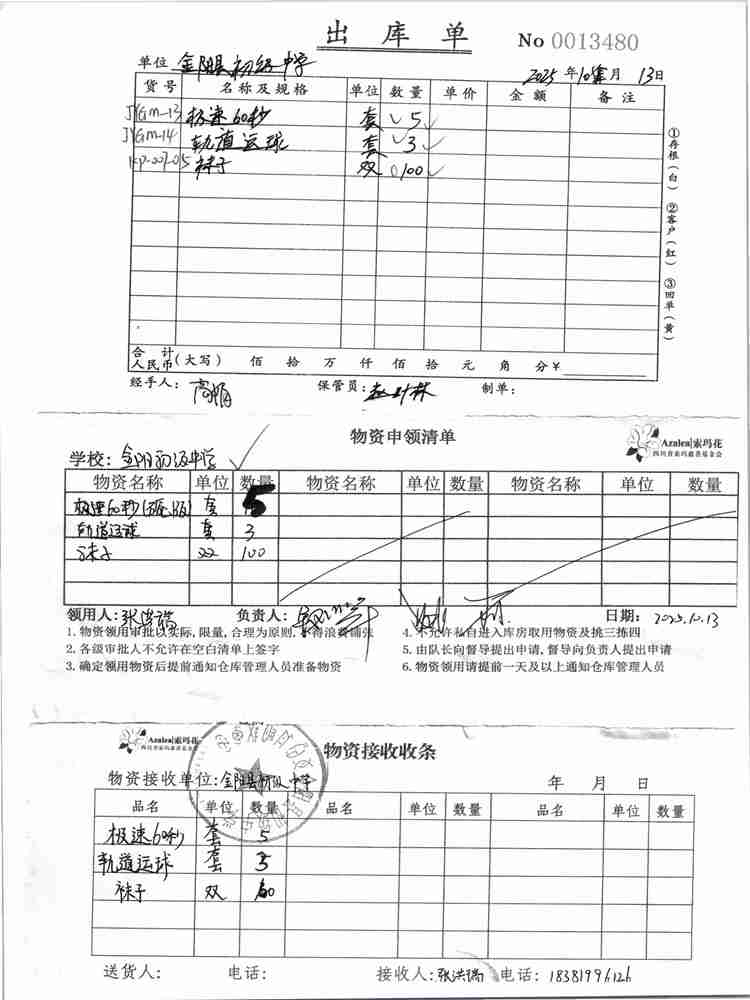 出库单 No 0013480
单位 金阳县初级中学 2025年10月13日
货号 名称及规格 单位 数量 单价 金额 备注
JYGM-13 极速60秒 套 5
JYGM-14 轨道运球 套 3
KP-007-05 袜子 双 100
①存根(白) ②客户(红) ③回单(黄)
合计人民币(大写) 佰 拾 万 仟 佰 拾 元 角 分¥
经手人:高娟 保管员: 制单:
物资申领清单 Azalea|索玛花
四川省索玛慈善基金会
学校:金阳初级中学
物资名称 单位 数量 物资名称 单位 数量 物资名称 单位 数量
极速60秒 套 5
轨道运球 套 3
袜子 双 100
领用人:张洪瑞 负责人: 日期:2025.10.13
1.物资领用审批以实际,限量,合理为原则,不得浪费铺张 4.不允许私自进入库房取用物资及挑三拣四
2.各级审批人不允许在空白清单上签字 5.由队长向督导提出申请,督导向负责人提出申请
3.确定领用物资后提前通知仓库管理人员准备物资 6.物资领用请提前一天及以上通知仓库管理人员
Azalea|索玛花
四川省索玛慈善基金会
物资接收收条
物资接收单位:金阳县初级中学 年 月 日
品名 单位 数量 品名 单位 数量 品名 单位 数量
极速60秒 套 5
轨道运球 套 3
袜子 双
送货人: 电话: 接收人:张洪瑞 电话:18381996126